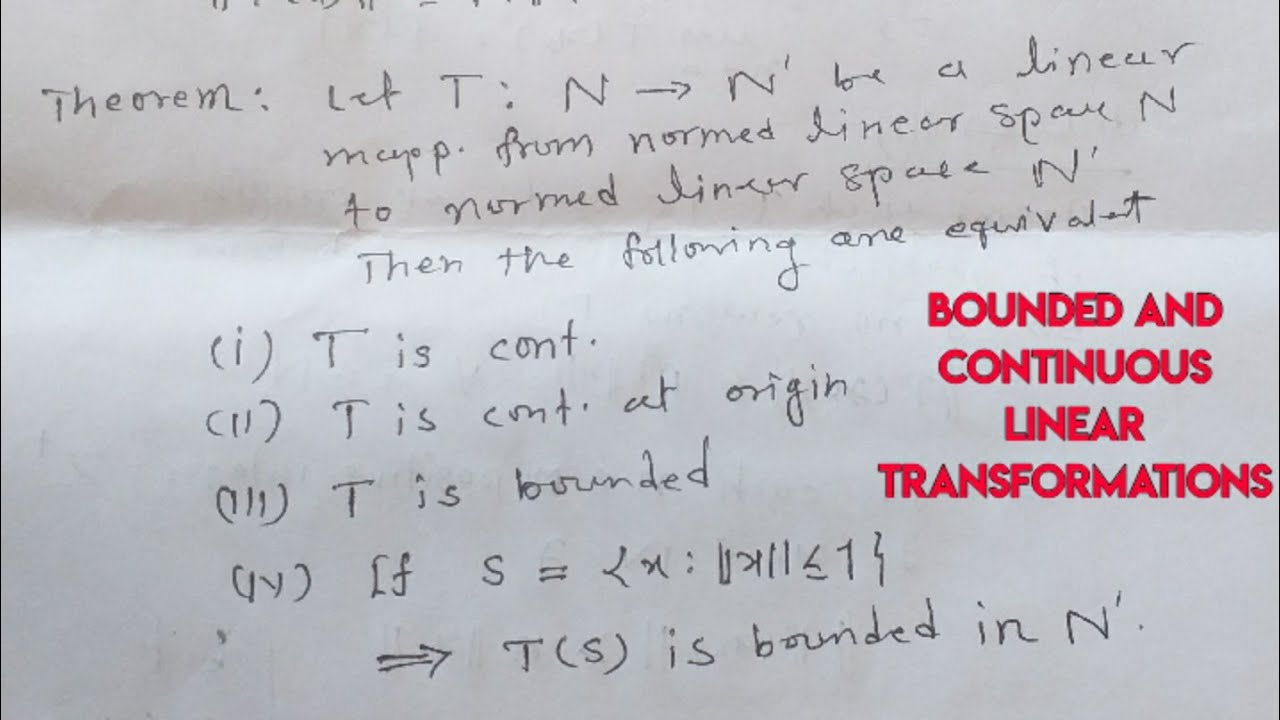 Theorem: Let T: N → N' be a linear
mapp. from normed linear space N
to normed linear space N'
Then the following are equivalent
(i) T is cont.
(II) T is cont. at origin
(III) T is bounded
(IV) If S = {x: ||x|| ≤ 1}
⇒ T(S) is bounded in N'.
BOUNDED AND
CONTINUOUS
LINEAR
TRANSFORMATIONS